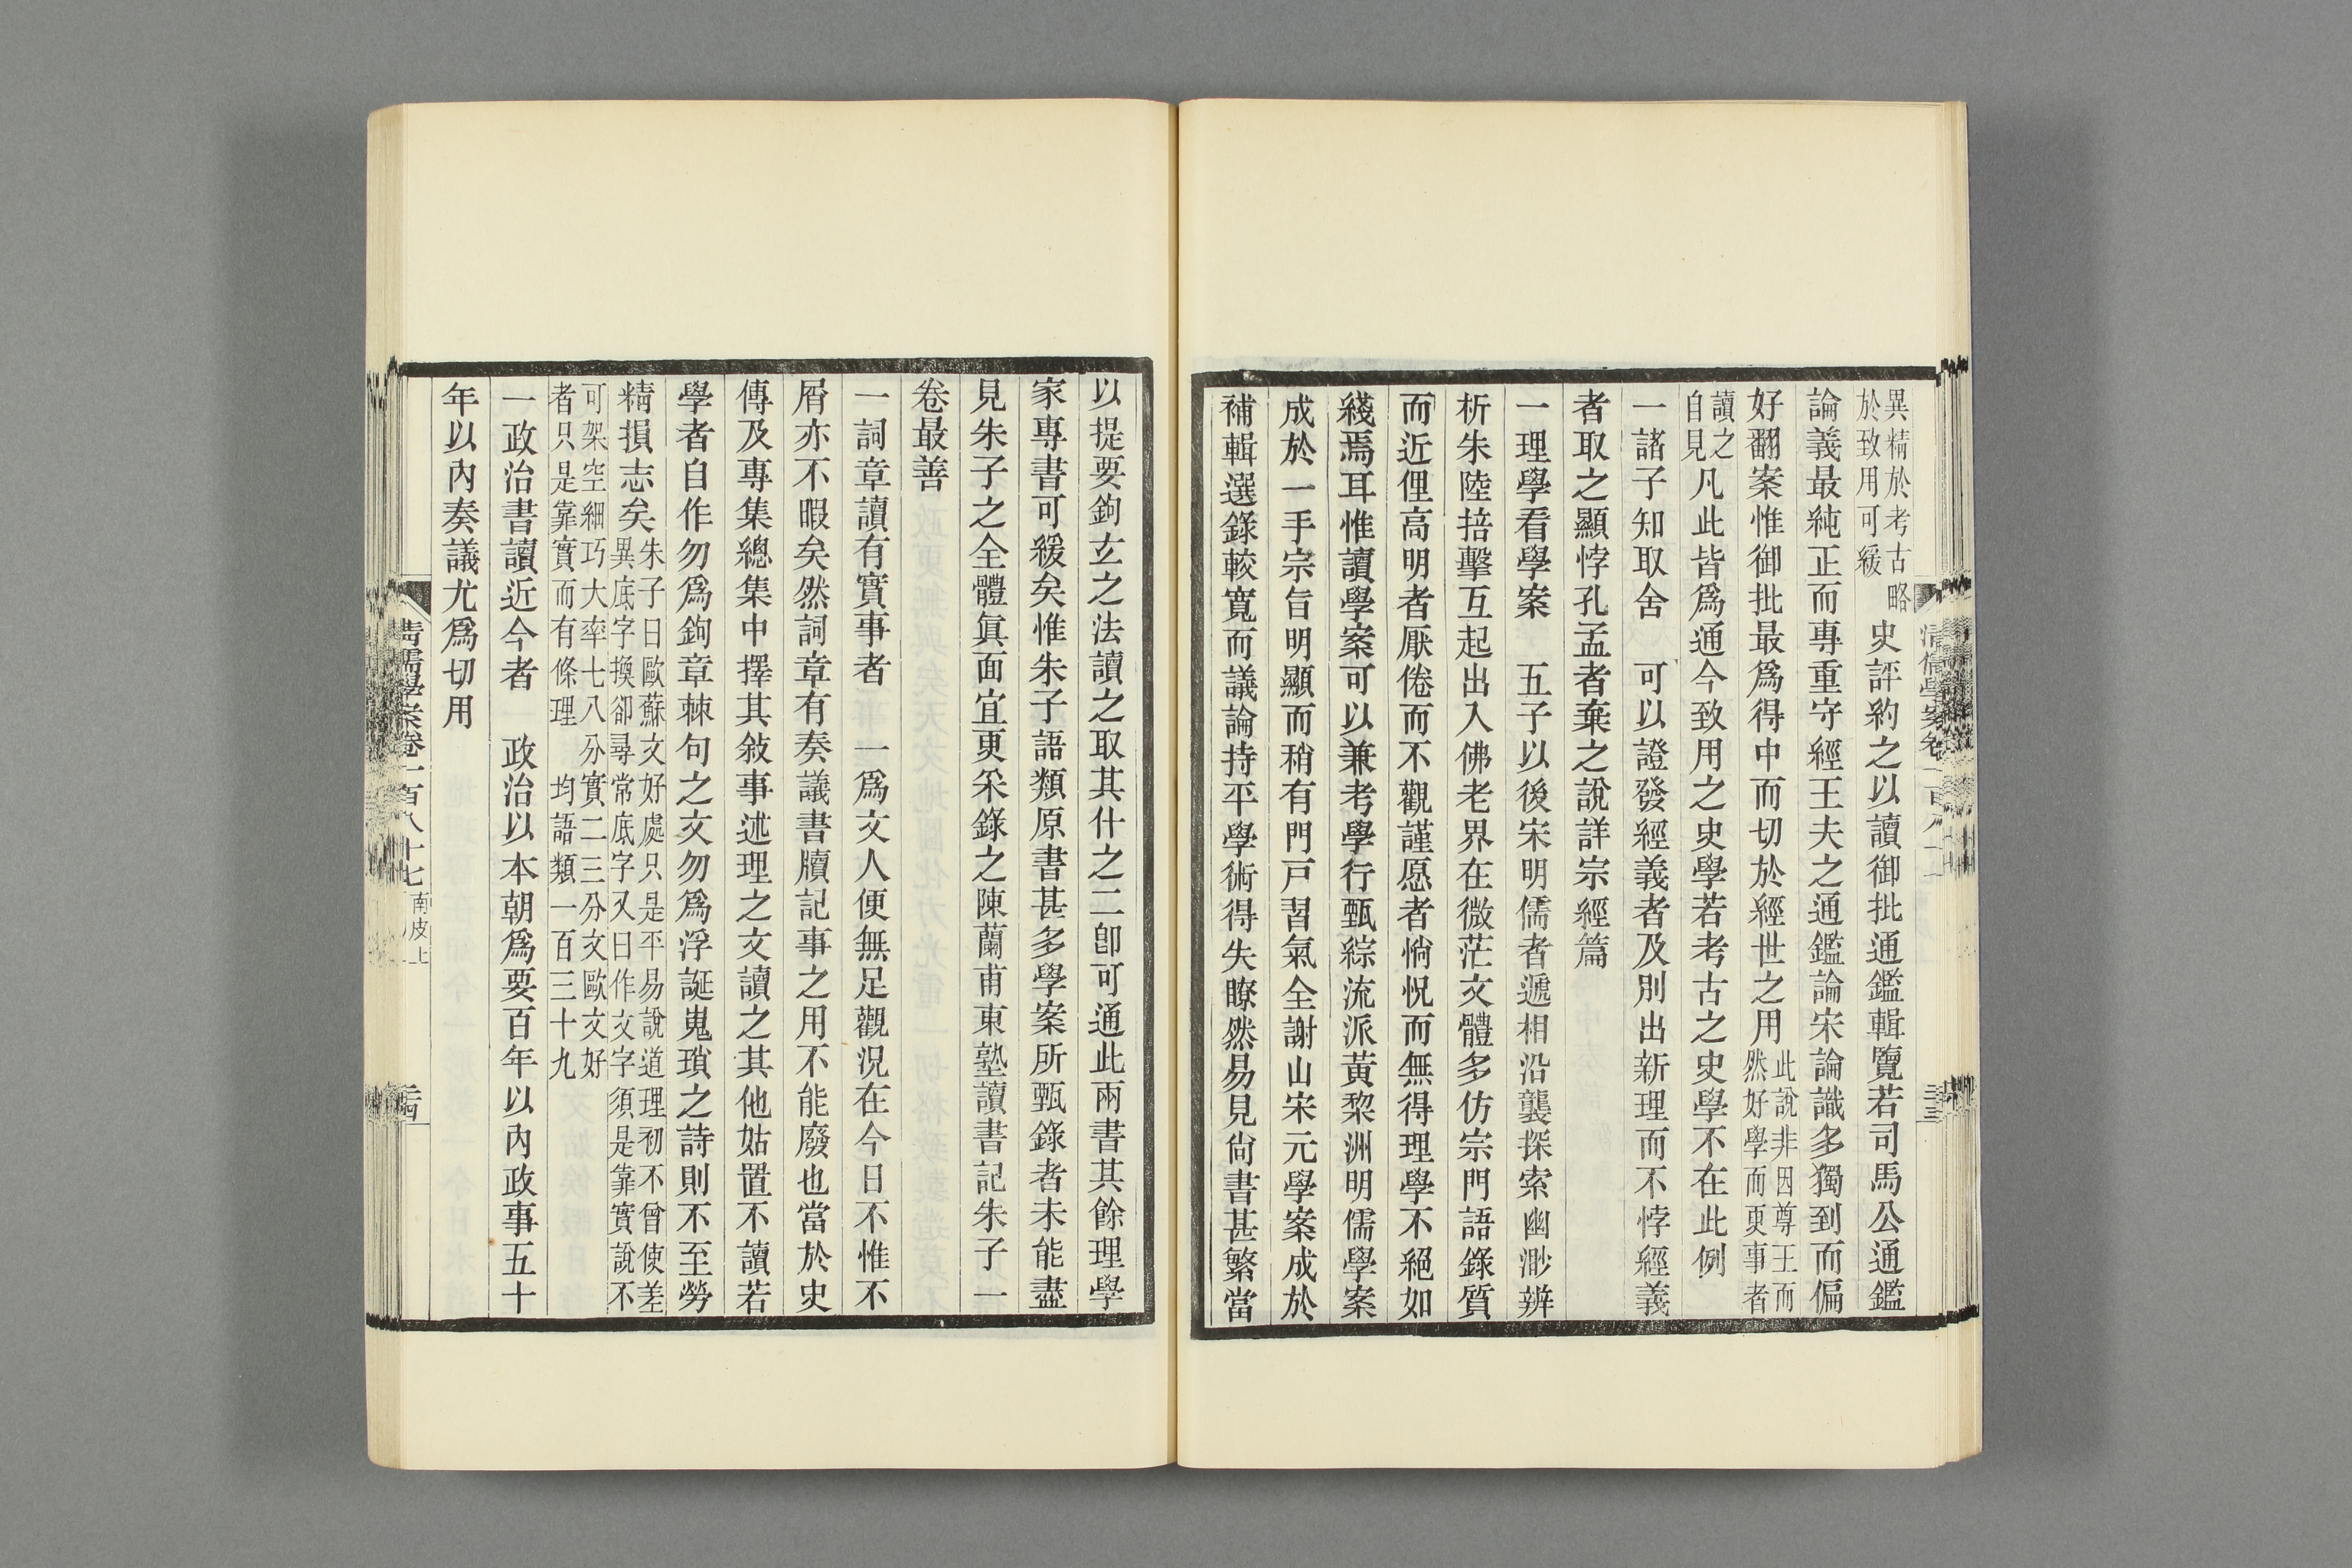 異精於考古略
於致用可緩
史評約之以讀御批通鑑輯覽若司馬公通鑑
論義最純正而專重守經王夫之通鑑論宋論識多獨到而偏
好翻案惟御批最爲得中而切於經世之用
此說非因尊王而
然好學而更事者
讀之
自見
凡此皆爲通今致用之史學若考古之史學不在此例
一諸子知取舍　可以證發經義者及別出新理而不悖經義
者取之顯悖孔孟者棄之說詳宗經篇
一理學看學案　五子以後宋明儒者遞相沿襲探索幽渺辨
析朱陸掊擊互起出入佛老界在微茫文體多仿宗門語錄質
而近俚高明者厭倦而不觀謹愿者惝怳而無得理學不絕如
綫焉耳惟讀學案可以兼考學行甄綜流派黃黎洲明儒學案
成於一手宗旨明顯而稍有門戸習氣全謝山宋元學案成於
補輯選錄較寬而議論持平學術得失瞭然易見尙書甚繁當
以提要鉤玄之法讀之取其什之二卽可通此兩書其餘理學
家專書可緩矣惟朱子語類原書甚多學案所甄錄者未能盡
見朱子之全體眞面宜更采錄之陳蘭甫東塾讀書記朱子一
卷最善
一詞章讀有實事者　一爲文人便無足觀況在今日不惟不
屑亦不暇矣然詞章有奏議書牘記事之用不能廢也當於史
傳及專集總集中擇其敍事述理之文讀之其他姑置不讀若
學者自作勿爲鉤章棘句之文勿爲浮誕嵬瑣之詩則不至勞
精損志矣
朱子曰歐蘇文好處只是平易說道理初不曾使差
異底字換卻尋常底字又曰作文字須是靠實說不
可架空細巧大率七八分實二三分文歐文好
者只是靠實而有條理　均語類一百三十九
一政治書讀近今者　政治以本朝爲要百年以內政事五十
年以內奏議尤爲切用
清儒學案卷一百八十七南皮上